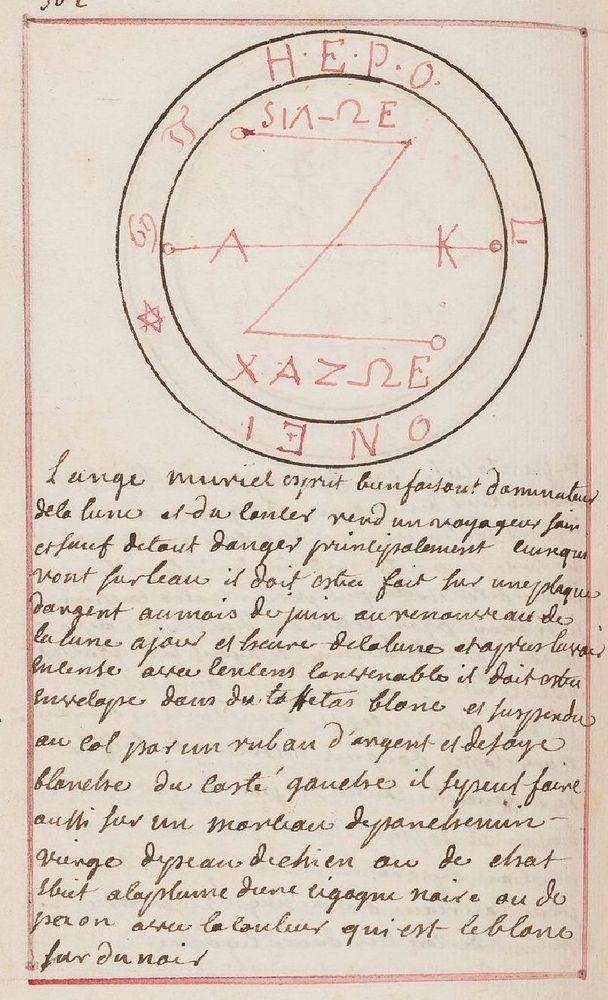 H·E·P·O·
L
ONEI
SIΛ-ΩE
Λ K
XAZΩE
L'ange muriel esprit bienfaisant dominateur
de la lune et du cancer rend un voyageur sain
et sauf de tout danger principalement ceux qui
vont sur leau il doit estre fait sur une plaque
d'argent au mois de juin au renouveau de
la lune a jour et heure de la lune et apres lavoir
encense avec lencens convenable il doit estre
envelopé dans du taffetas blanc et suspendu
au col par un ruban d'argent et de soye
blanche du costé gauche il sepeut faire
aussi sur un morceau de parchemin
vierge de peau de chien ou de chat
a la plume dune cigogne noire ou de
paon avec la couleur qui est le blanc
sur du noir